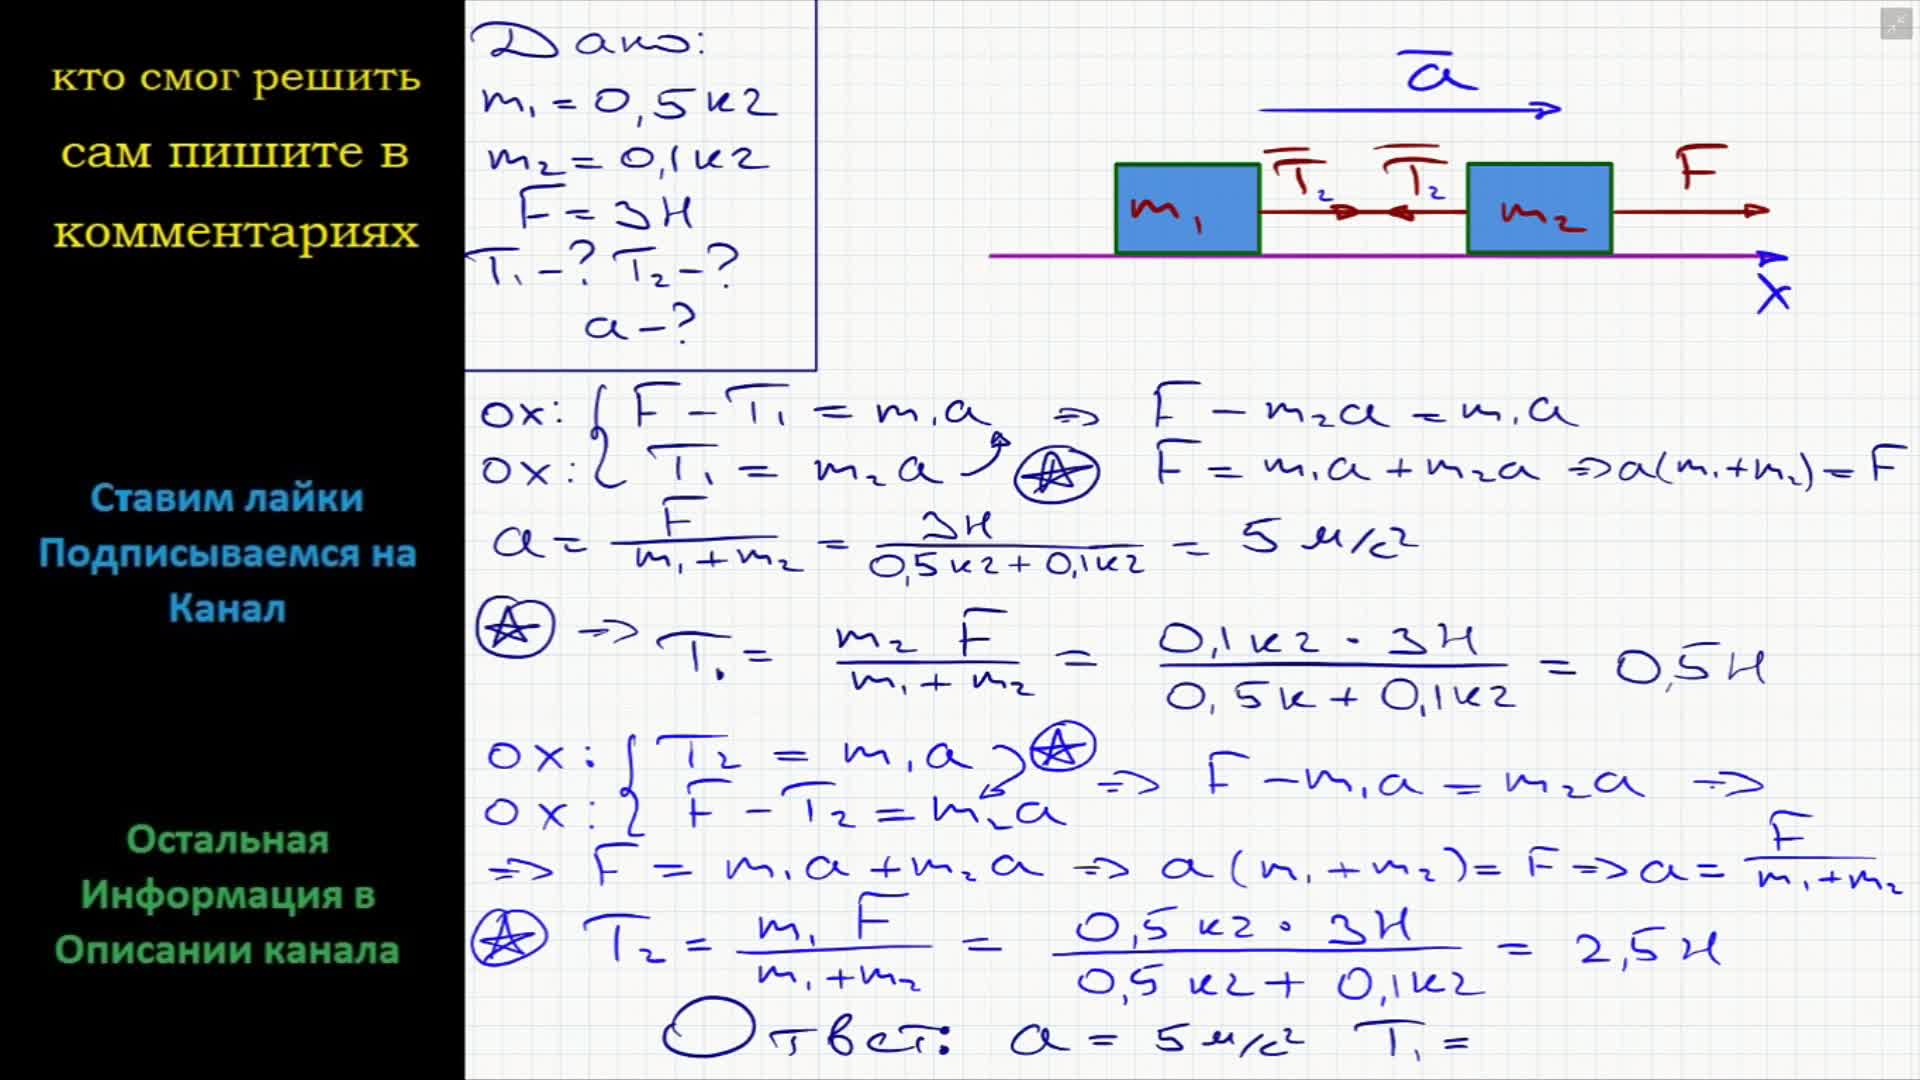 кто смог решить
сам пишите в
комментариях
Ставим лайки
Подписываемся на
Канал
Остальная
Информация в
Описании канала
Дано:
m₁ = 0,5 кг
m₂ = 0,1 кг
F = 3 Н
T₁ – ? T₂ – ?
a – ?
a
T₂ T₂ F
m₁ m₂
x
ox: { F – T₁ = m₁a ⇒ F – m₂a = m₁a
ox: { T₁ = m₂a F = m₁a + m₂a ⇒ a(m₁+m₂) = F
a = F/(m₁+m₂) = 3Н/(0,5кг + 0,1кг) = 5 м/с²
⇒ T₁ = m₂ F/(m₁ + m₂) = 0,1кг · 3Н/(0,5к + 0,1кг) = 0,5Н
ox: { T₂ = m₁a
ox: { F – T₂ = m₂a ⇒ F – m₁a = m₂a ⇒
⇒ F = m₁a + m₂a ⇒ a(m₁+m₂) = F ⇒ a = F/(m₁+m₂)
T₂ = m₁ F/(m₁+m₂) = 0,5 кг · 3Н/(0,5 кг + 0,1кг) = 2,5Н
Ответ: a = 5 м/с² T₁ =